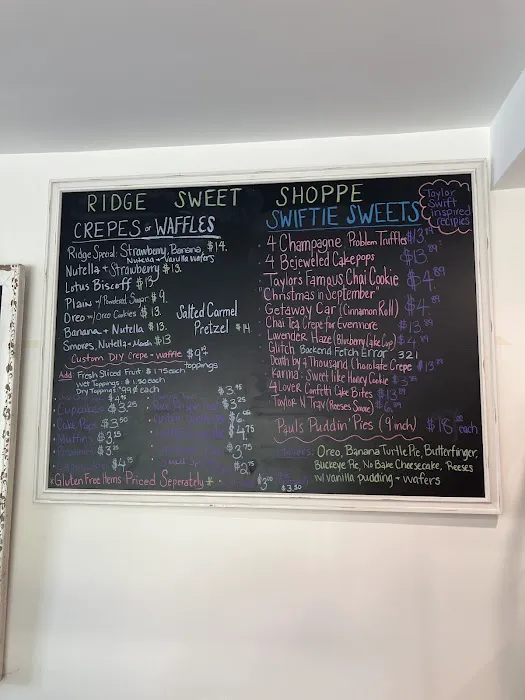 RIDGE SWEET SHOPPE
CREPES or WAFFLES
Ridge Special: Strawberry, Banana, $14.
Nutella + Vanilla Wafers
Nutella + Strawberry $13.
Lotus Biscoff $13
Plain w/ Powdered Sugar $9.
Oreo w/ Oreo Cookies $13.
Banana + Nutella $13.
Smores, Nutella + Marsh $13
Salted Carmel
Pretzel $14
Custom DIY Crepe or Waffle $9 + toppings
Add Fresh Sliced Fruit $1.75 each
Wet Toppings $1.50 each
Dry Toppings .99¢ each
$4.75
Cupcakes $3.25
Cake Pops $3.50
Muffins $3.15
$3.25
$4.75
$3.45
$3.25
$4.75
$3.75
$2.75
*Gluten Free Items Priced Seperately*
$3.00
$3.50
SWIFTIE SWEETS
Taylor
Swift
inspired
recipies
4 Champagne Problem Truffles $13.89
4 Bejeweled Cakepops $13.89
Taylors Famous Chai Cookie $4.89
"Christmas in September"
Getaway Car (Cinnamon Roll) $4.89
Chai Tea Crepe for Evermore $13.89
Lavender Haze (Blueberry Cake Cup) $4.89
Glitch Backend Fetch Error 321
Death by a Thousand Chocolate Crepe $13.89
Karma: Sweet like Honey Cookie $3.89
4 Lover Confetti Cake Bites $13.89
Taylor N Tray (Reeses Smore) $6.89
Pauls Puddin' Pies (9 inch) $18.00 each
Flavors: Oreo, Banana Turtle Pie, Butterfinger,
Buckeye Pie, No Bake Cheesecake, Reeses
w/ vanilla pudding + wafers